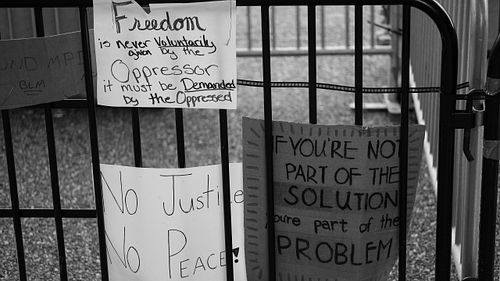 Freedom
is never Voluntarily
given by the
Oppressor
it must be Demanded
by the Oppressed
BLM
No Justice
No Peace!
IF YOU'RE NOT
PART OF THE
SOLUTION
you're part of the
PROBLEM